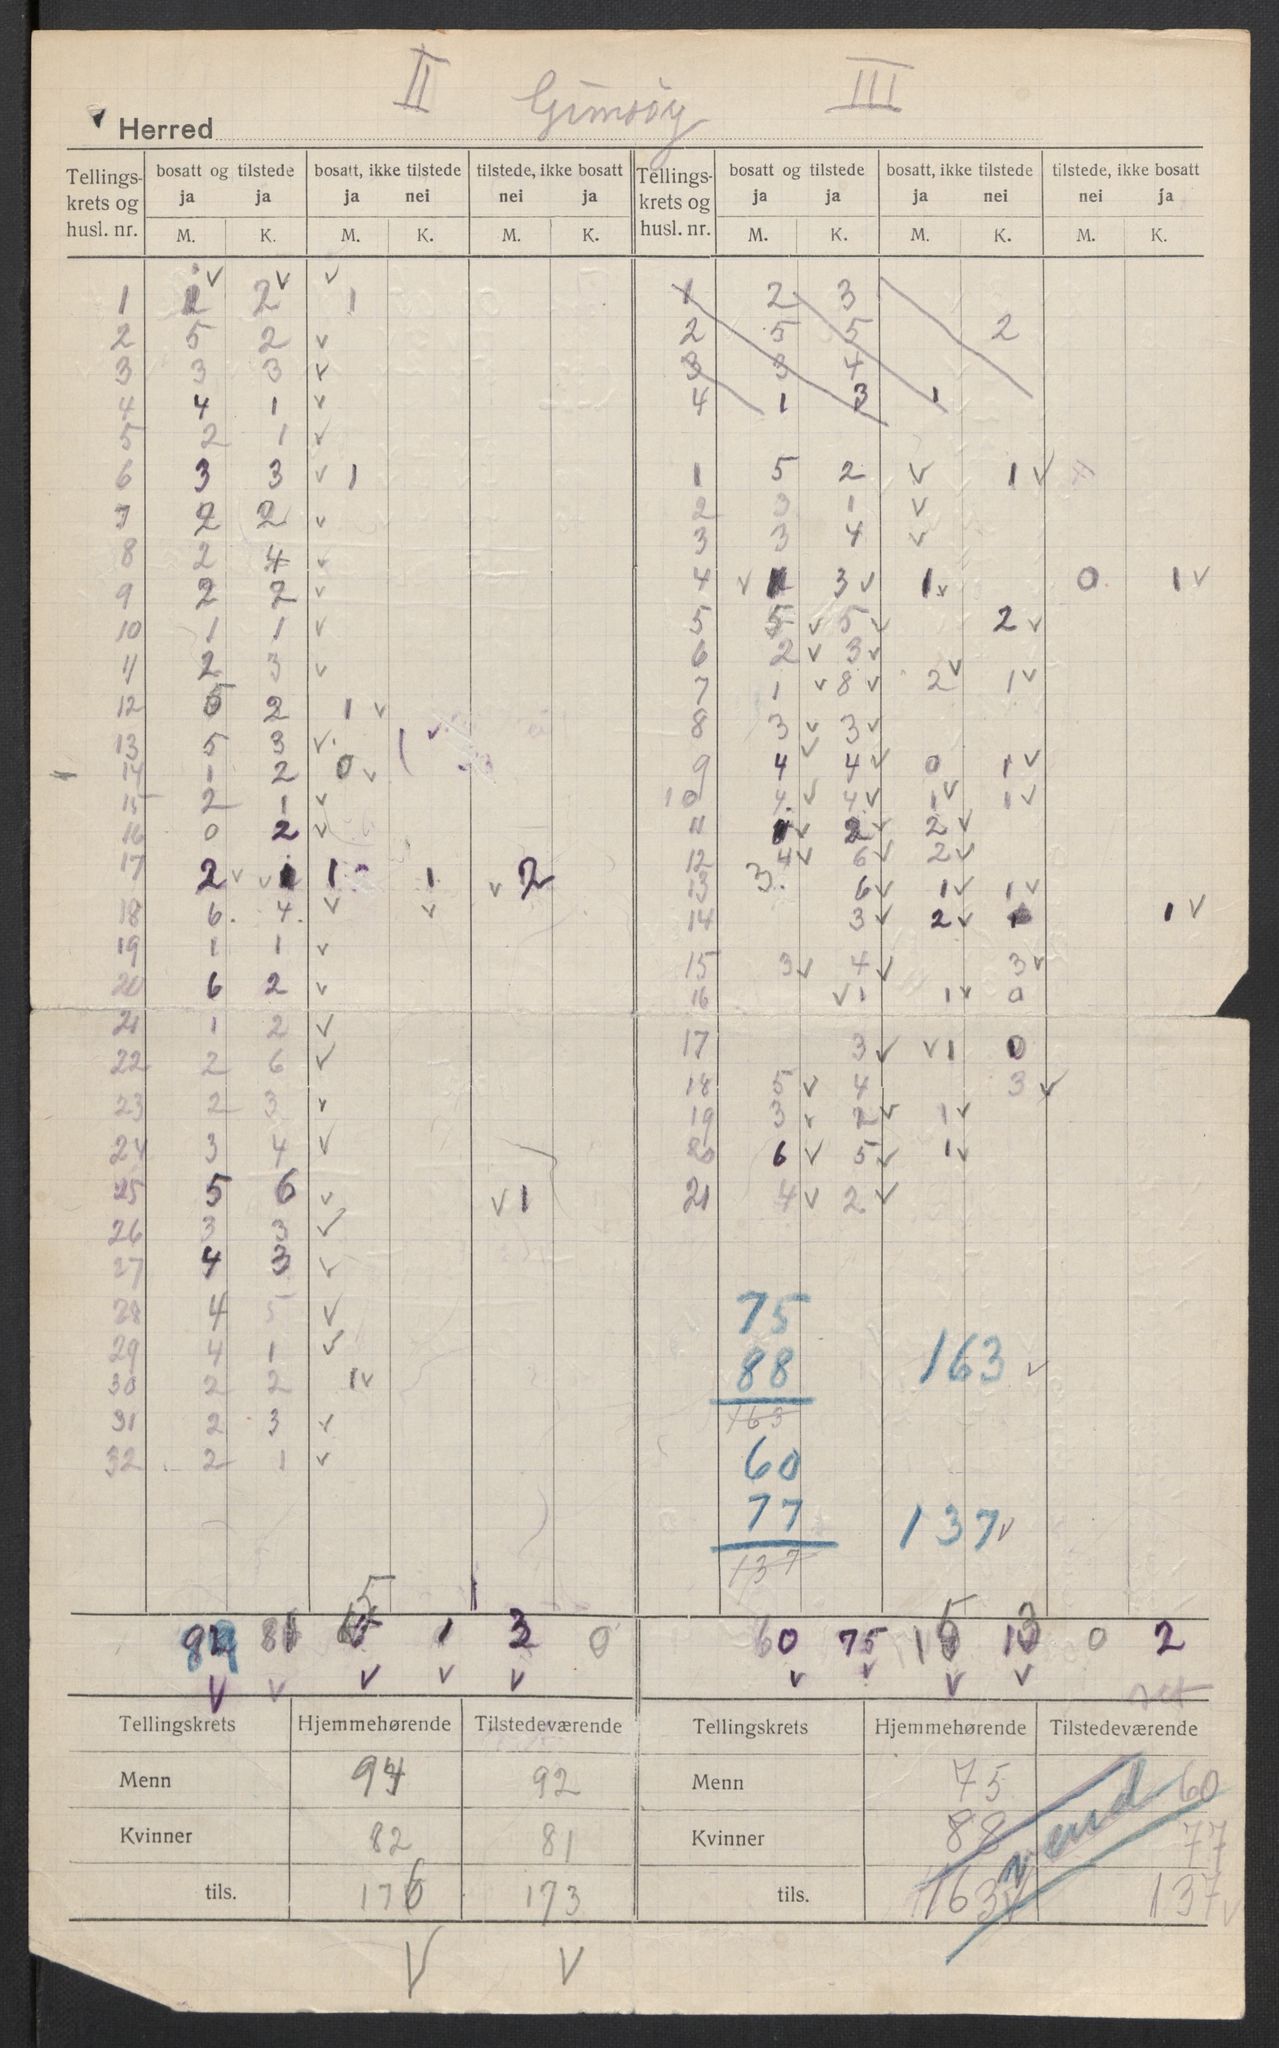 II Gimsöy III
Herred
Tellings-krets og husl. nr. | bosatt og tilstede ja ja | bosatt, ikke tilstede ja nei | tilstede, ikke bosatt nei ja | Tellings-krets og husl. nr. | bosatt og tilstede ja ja | bosatt, ikke tilstede ja nei | tilstede, ikke bosatt nei ja
M. K. M. K. M. K. M. K. M. K. M. K.
1 2 2 1
2 5 2
3 3 3
4 4 1
5 2 1
6 3 3 1
7 2 2
8 2 4
9 2 2
10 1 1
11 2 3
12 5 2 1
13 5 3
14 1 2 0
15 2 1
16 0 2
17 2 1 1 1 2
18 6 4
19 1 1
20 6 2
21 1 2
22 2 6
23 2 3
24 3 4
25 5 6 1
26 3 3
27 4 3
28 4 5
29 4 1
30 2 2 1
31 2 3
32 2 1
89 81 5 1 3 0
1 2 3
2 5 5 2
3 3 4
4 1 3 1
1 5 2 1
2 3 1
3 3 4
4 1 3 1 0 1
5 5 5 2
6 2 3
7 1 8 2 1
8 3 3
9 4 4 0 1
10 4 4 1 1
11 1 2 2
12 4 6 2
13 3 6 1 1
14 3 2 1 1
15 3 4 3
16 1 1 0
17 3 1 0
18 5 4 3
19 3 2 1
20 6 5 1
21 4 2
75
88 163
163
60
77 137
137
60 75 15 13 0 2
Tellingskrets Hjemmehørende Tilstedeværende
Menn 94 92
Kvinner 82 81
tils. 176 173
Tellingskrets Hjemmehørende Tilstedeværende
Menn 75 60
Kvinner 88 77
tils. 163 137
vend